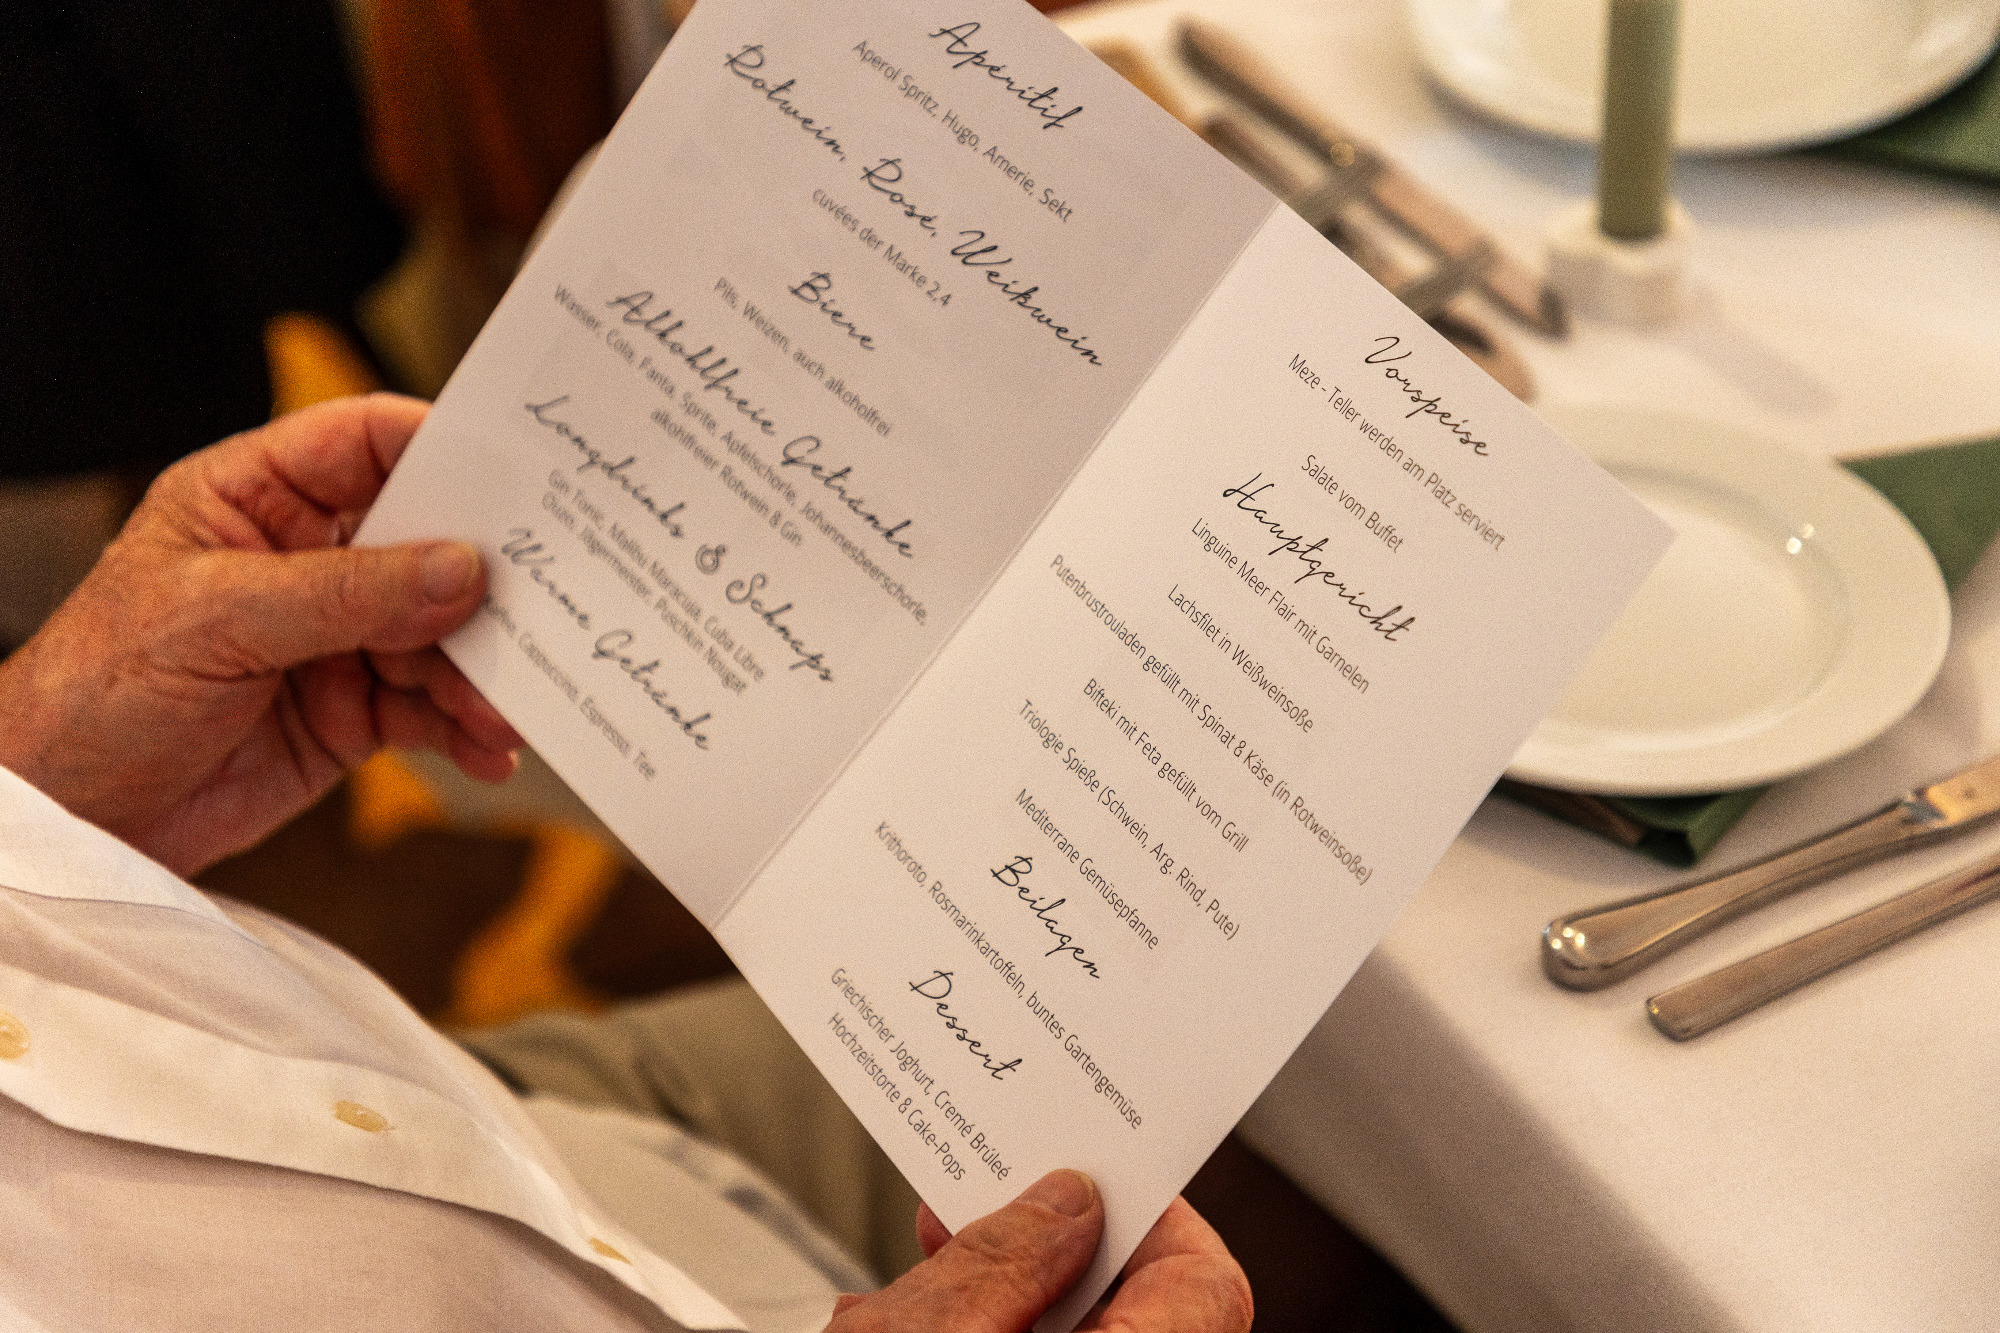 Apéritif
Aperol Spritz, Hugo, Amerie, Sekt
Rotwein, Rosé, Weißwein
cuvées der Marke 2,4
Biere
Pils, Weizen, auch alkoholfrei
Alkohlfreie Getränke
Wasser, Cola, Fanta, Sprite, Apfelschorle, Johannesbeerschorle,
alkohlfreier Rotwein & Gin
Longdrinks & Schnaps
Gin Tonic, Malibu Maracuja, Cuba Libre
Ouzo, Jägermeister, Puschkin Nougat
Warme Getränke
Cappuccino, Espresso, Tee
Vorspeise
Meze - Teller werden am Platz serviert
Salate vom Buffet
Hauptgericht
Linguine Meer Flair mit Garnelen
Lachsfilet in Weißweinsoße
Putenbrustrouladen gefüllt mit Spinat & Käse (in Rotweinsoße)
Bifteki mit Feta gefüllt vom Grill
Triologie Spieße (Schwein, Arg. Rind, Pute)
Mediterrane Gemüsepfanne
Beilagen
Krithoroto, Rosmarinkartoffeln, buntes Gartengemüse
Dessert
Griechischer Joghurt, Cremé Brúleé
Hochzeitstorte & Cake-Pops